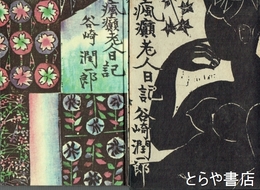 瘋癲老人日記
谷崎潤一郎
瘋癲老人日記
谷崎潤一郎
とらや書店